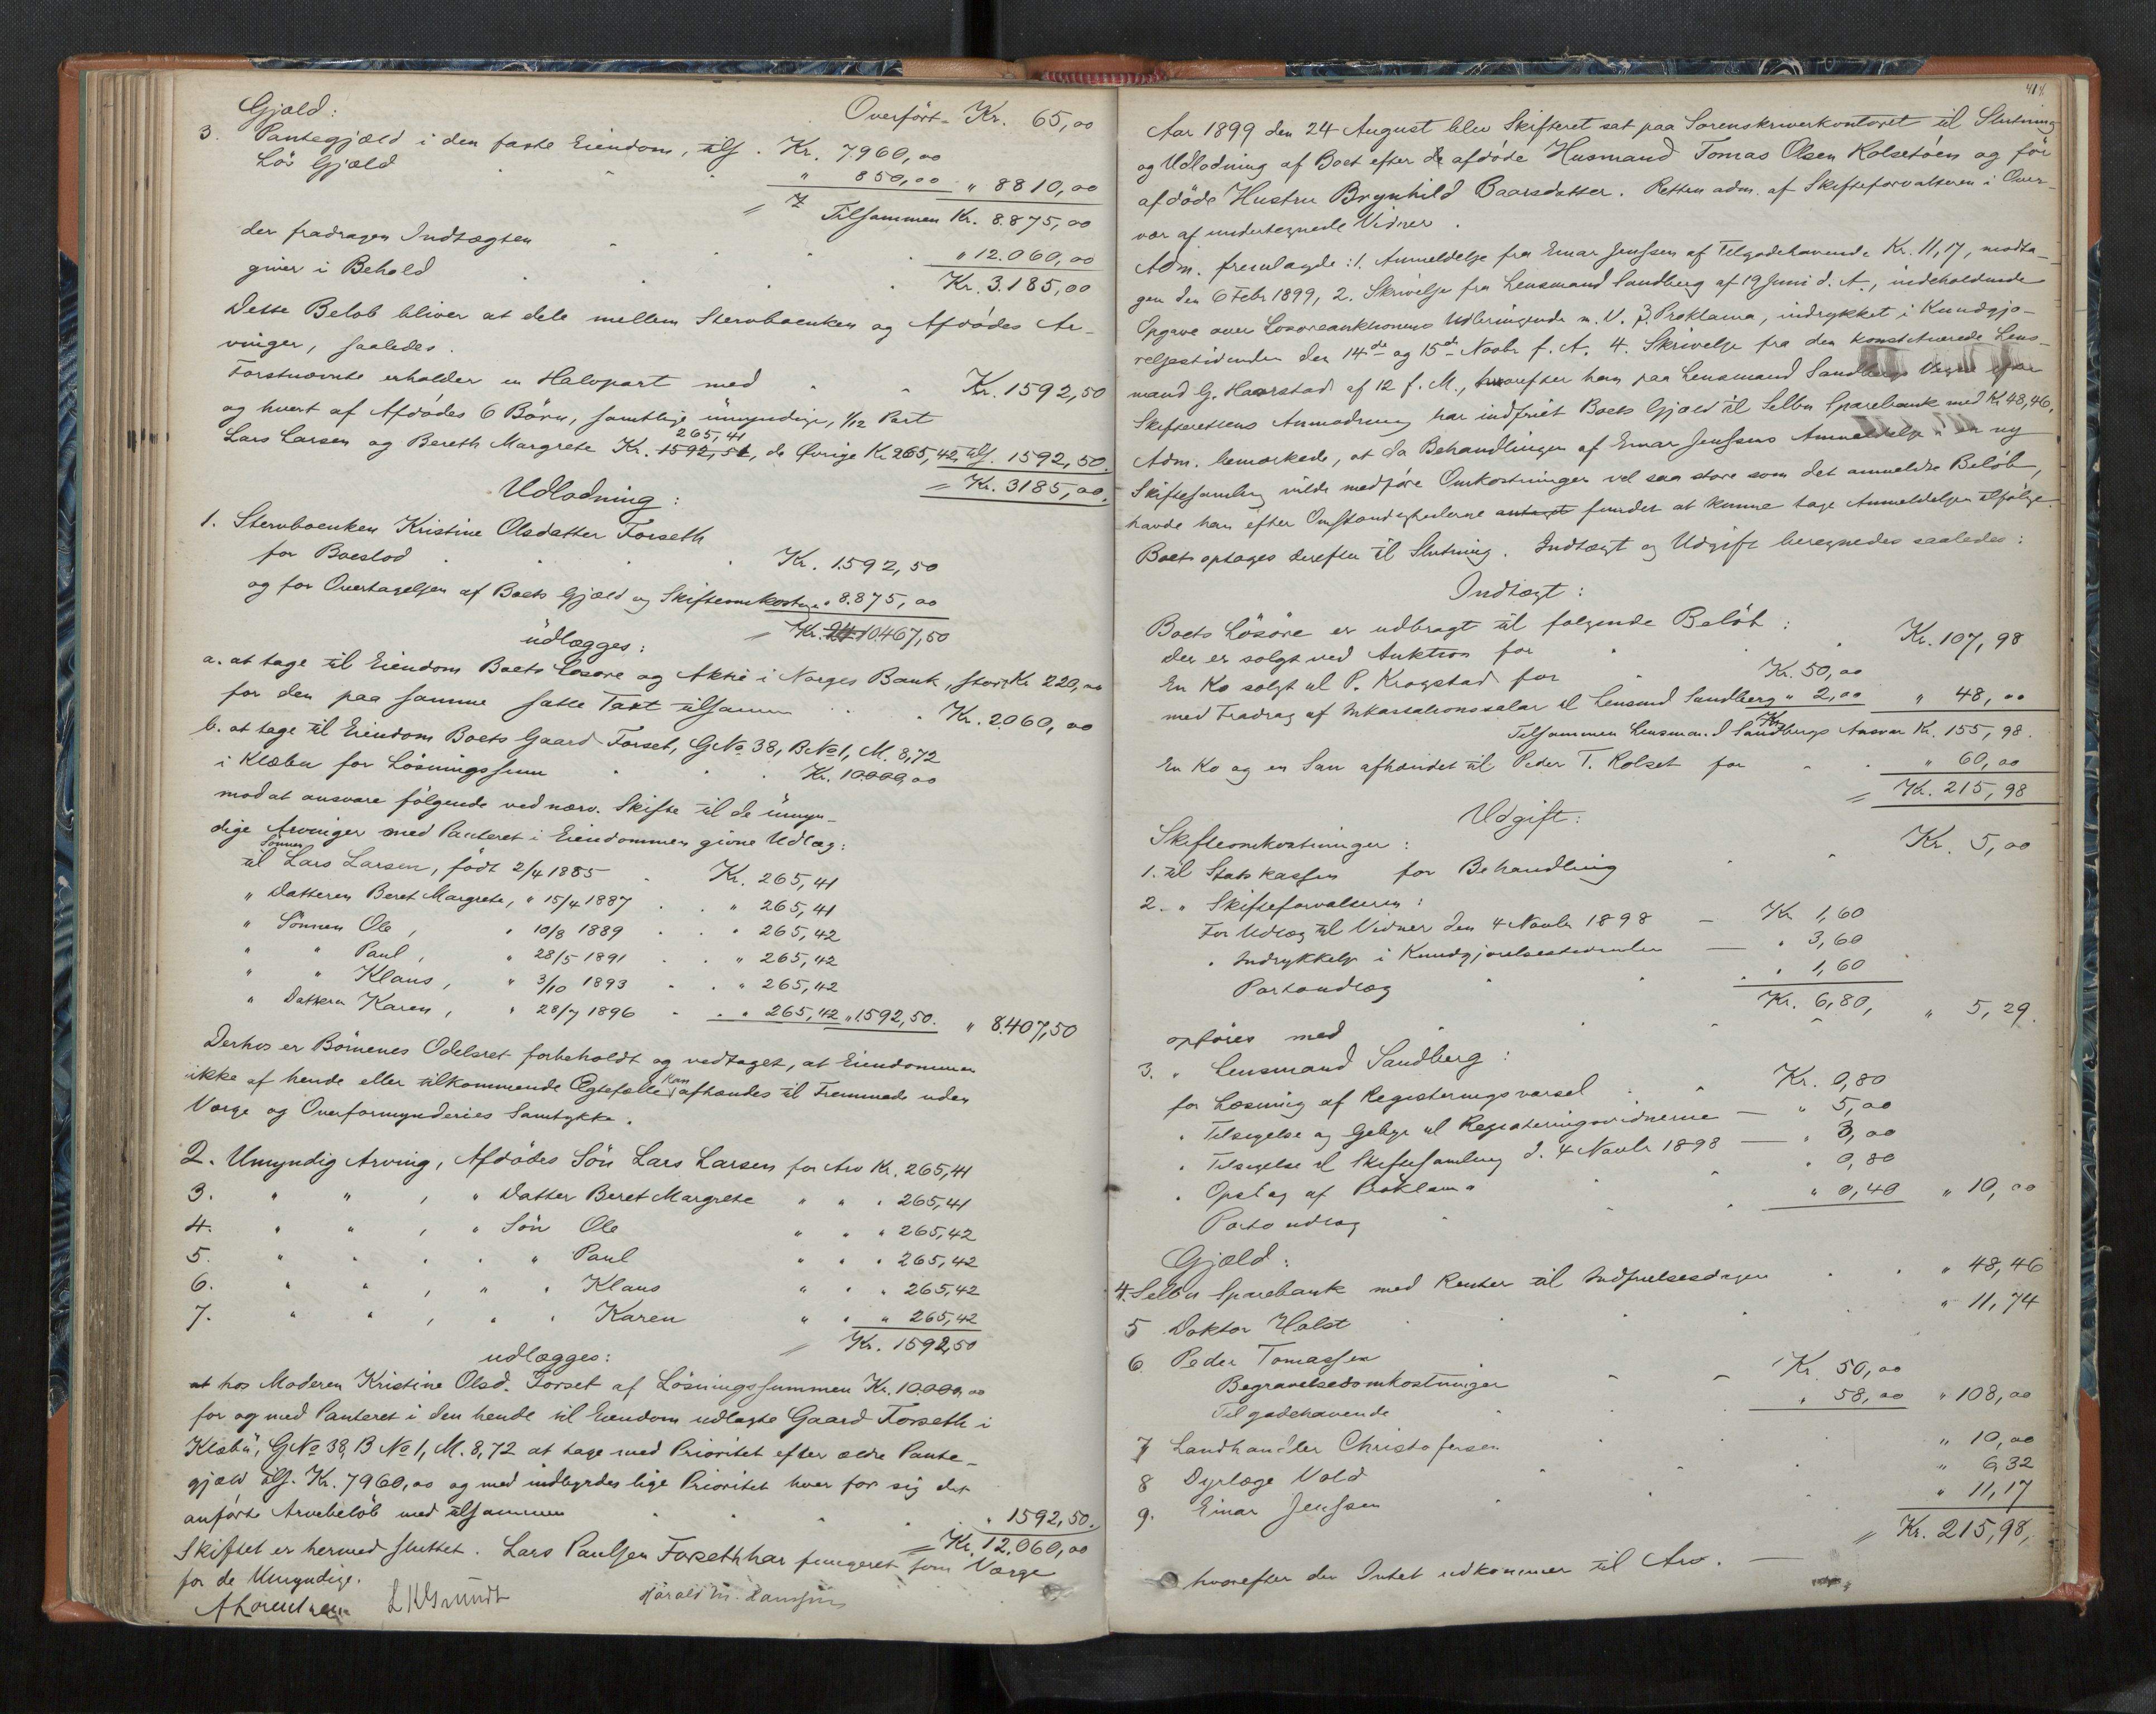 Gjæld:
Overført - Kr. 65,00
3. Pantegjæld i den faste Eiendom, tils. Kr. 7.960,00
Lös Gjæld " 850,00 " 8810,00
Tilsammen Kr. 8.875,00
der fradragen Indtægten " 12.060,00
giver i Behold Kr. 3.185,00
Dette Beløb bliver at dele mellem Stervboenken og Afdødes Ar-
vinger, saaledes.
Førstnævnte erholder en Halvpart med Kr. 1592,50
og hvert af Afdødes 6 Børn, samtlige ümyndige, 1/12 Part
265,41
Lars Larsen og Bereth Margrete Kr. 1592,51, de Øvrige Kr 265,42, tils. 1592,50.
= Kr. 3185,00.
Udlodning:
1. Stervboenken Kristine Olsdatter Forseth
for Boeslod Kr. 1.592,50
og for Overtagelsen af Boets Gjæld og Skifteomkostn. " 8.875,00
= Kr. 10.467,50
üdlægges:
a. at tage til Eiendom Boets Løsøre og Aktie i Norges Bank, stor Kr 220,00
for den paa samme satte Taxt tilsammen Kr. 2.060,00
b. at tage til Eiendom Boets Gaard Forset, GNo 38, BNo 1, M. 8,72
i Klæbu for Løsningssum Kr. 10.000,00
mod at ansvare følgende ved nærv. Skifte til de ümyn-
dige Arvinger med Panteret i Eiendommen givne Udlæg:
Sønnen
til Lars Larsen, født 2/4 1885 Kr. 265,41
" Datteren Beret Margrete, " 15/4 1887 " 265,41
" Sönnen Ole, " 10/8 1889 " 265,42
" " Paul, " 28/5 1891 " 265,42
" " Klaus, " 3/10 1893 " 265,42
" Datteren Karen, " 28/7 1896 " 265,42 " 1592,50. " 8.407,50
Derhos er Børnenes Odelsret forbeholdt og vedtaget, at Eiendommen
ikke af hende eller tilkommende Ægtefælle kan afhændes til Fremmede uden
Værge og Overformynderies Samtykke.
2. Umyndig Arving, Afdødes Søn Lars Larsen for Arv Kr. 265,41
3. " " , " Datter Beret Margrete " " " 265,41
4. " " , " Søn Ole " " " 265,42
5. " " " " Paul " " " 265,42
6. " " , " " Klaus " " " 265,42
7. " " , " " Karen " " " 265,42
= Kr. 1592,50
udlægges:
at hos Moderen Kristine Olsd. Forset af Løsningssummen Kr. 10.000,00
for og med Panteret i den hende til Eiendom udlagte Gaard Forseth i
Klæbü, GNo 38, B No 1, M. 8,72 at tage med Prioritet efter ældre Pante-
gjæld tils. Kr. 7960,00 og med indbyrdes lige Prioritet hver for sig det
anførte Arvebeløb med tilsammen " 1592,50.
= Kr. 12.060,00
Skiftet er hermed sluttet. Lars Paulsen Forseth har fungeret som Værge
for de Umyndige.
LKGrundt
414.
Aar 1899 den 24 August blev Skifteret sat paa Sorenskriverkontoret til Slutning
og Udlodning af Boet efter de afdøde Husmand Tomas Olsen Kolsetøen og før
afdøde Hustru Brynhild Baarsdatter. Retten adm. af Skifteforvalteren i Over-
vær af undertegnede Vidner.
Adm. fremlagde: 1. Anmeldelse fra Einar Jenssen af Tilgodehavende Kr. 11,17, modta-
gen den 6 Febr 1899, 2. Skrivelse fra Lensmand Sandberg af 19 Juni d. A., indeholdende
Opgave over Løsøreauktionens Udbringende m. V. 3. Proklama, indrykket i Kundgjø-
relsestidende den 14de og 15de Novbr f. A. 4. Skrivelse fra den konstituerede Lens-
mand G. Haarstad af 12 f. M., hvorefter han paa Lensmand Sandbergs Vegne efter
Skifterettens Anmodning har indfriet Boets Gjæld til Selbu Sparebank med Kr 48,46.
Adm. bemærkede, at da Behandlingen af Einar Jenssens Anmeldelse i en ny
Skiftesamling vilde medføre Omkostninger vel saa store som det anmeldte Beløb,
havde han efter Omstændighederne antaget fundet at kunne tage Anmeldelsen tilfølge.
Boet optages derefter til Slutning. Indtægt og Udgift beregnedes saaledes:
Indtægt:
Boets Løsøre er udbragt til følgende Beløb:
Der er solgt ved Auktion for Kr. 107,98
En Ko solgt til P. Kragstad for Kr. 50,00
med Fradrag af Inkassationssalær til Lensmd Sandberg " 2,00 " 48,00
Tilsammen Lensmand Sandbergs Ansvar Kr. 155,98.
En Ko og en Sau afhændet til Peder T. Kolset for " 60,00
= Kr. 215,98
Udgift:
Skifteomkostninger:
1. til Statskassen for Behandling Kr. 5,00
2. " Skifteforvalteren:
For Udlæg til Vidner den 4 Novbr 1898 — Kr 1,60
" Indrykkelse i Kundgjørelsestidende — " 3,60
Portoudlæg " 1,60
Kr. 6,80,
opføres med " 5,29.
3. " Lensmand Sandberg:
for Læsning af Registeringsvarsel Kr. 0,80
" Tilsigelse og Gebyr til Registeringsvidnerne — " 5,00
" Tilsigelse til Skiftesamling d. 4 Novbr 1898 — " 3,00
" Opslag af Proklama " 0,80
Porto udlæg " 0,40 " 10,00
Gjæld:
4. Selbu Sparebank med Renter til Indfrielsesdagen " 48,46
5 Doktor Holst " 11,74
6 Peder Tomassen
Begravelsesomkostninger Kr. 50,00
Tilgodehavende " 58,00 " 108,00
7 Landhandler Christofersen " 10,00
8 Dyrlæge Vold " 6,32
9. Einar Jenssen " 11,17
= Kr. 215,98,
hvorefter der Intet udkommer til Arv. —